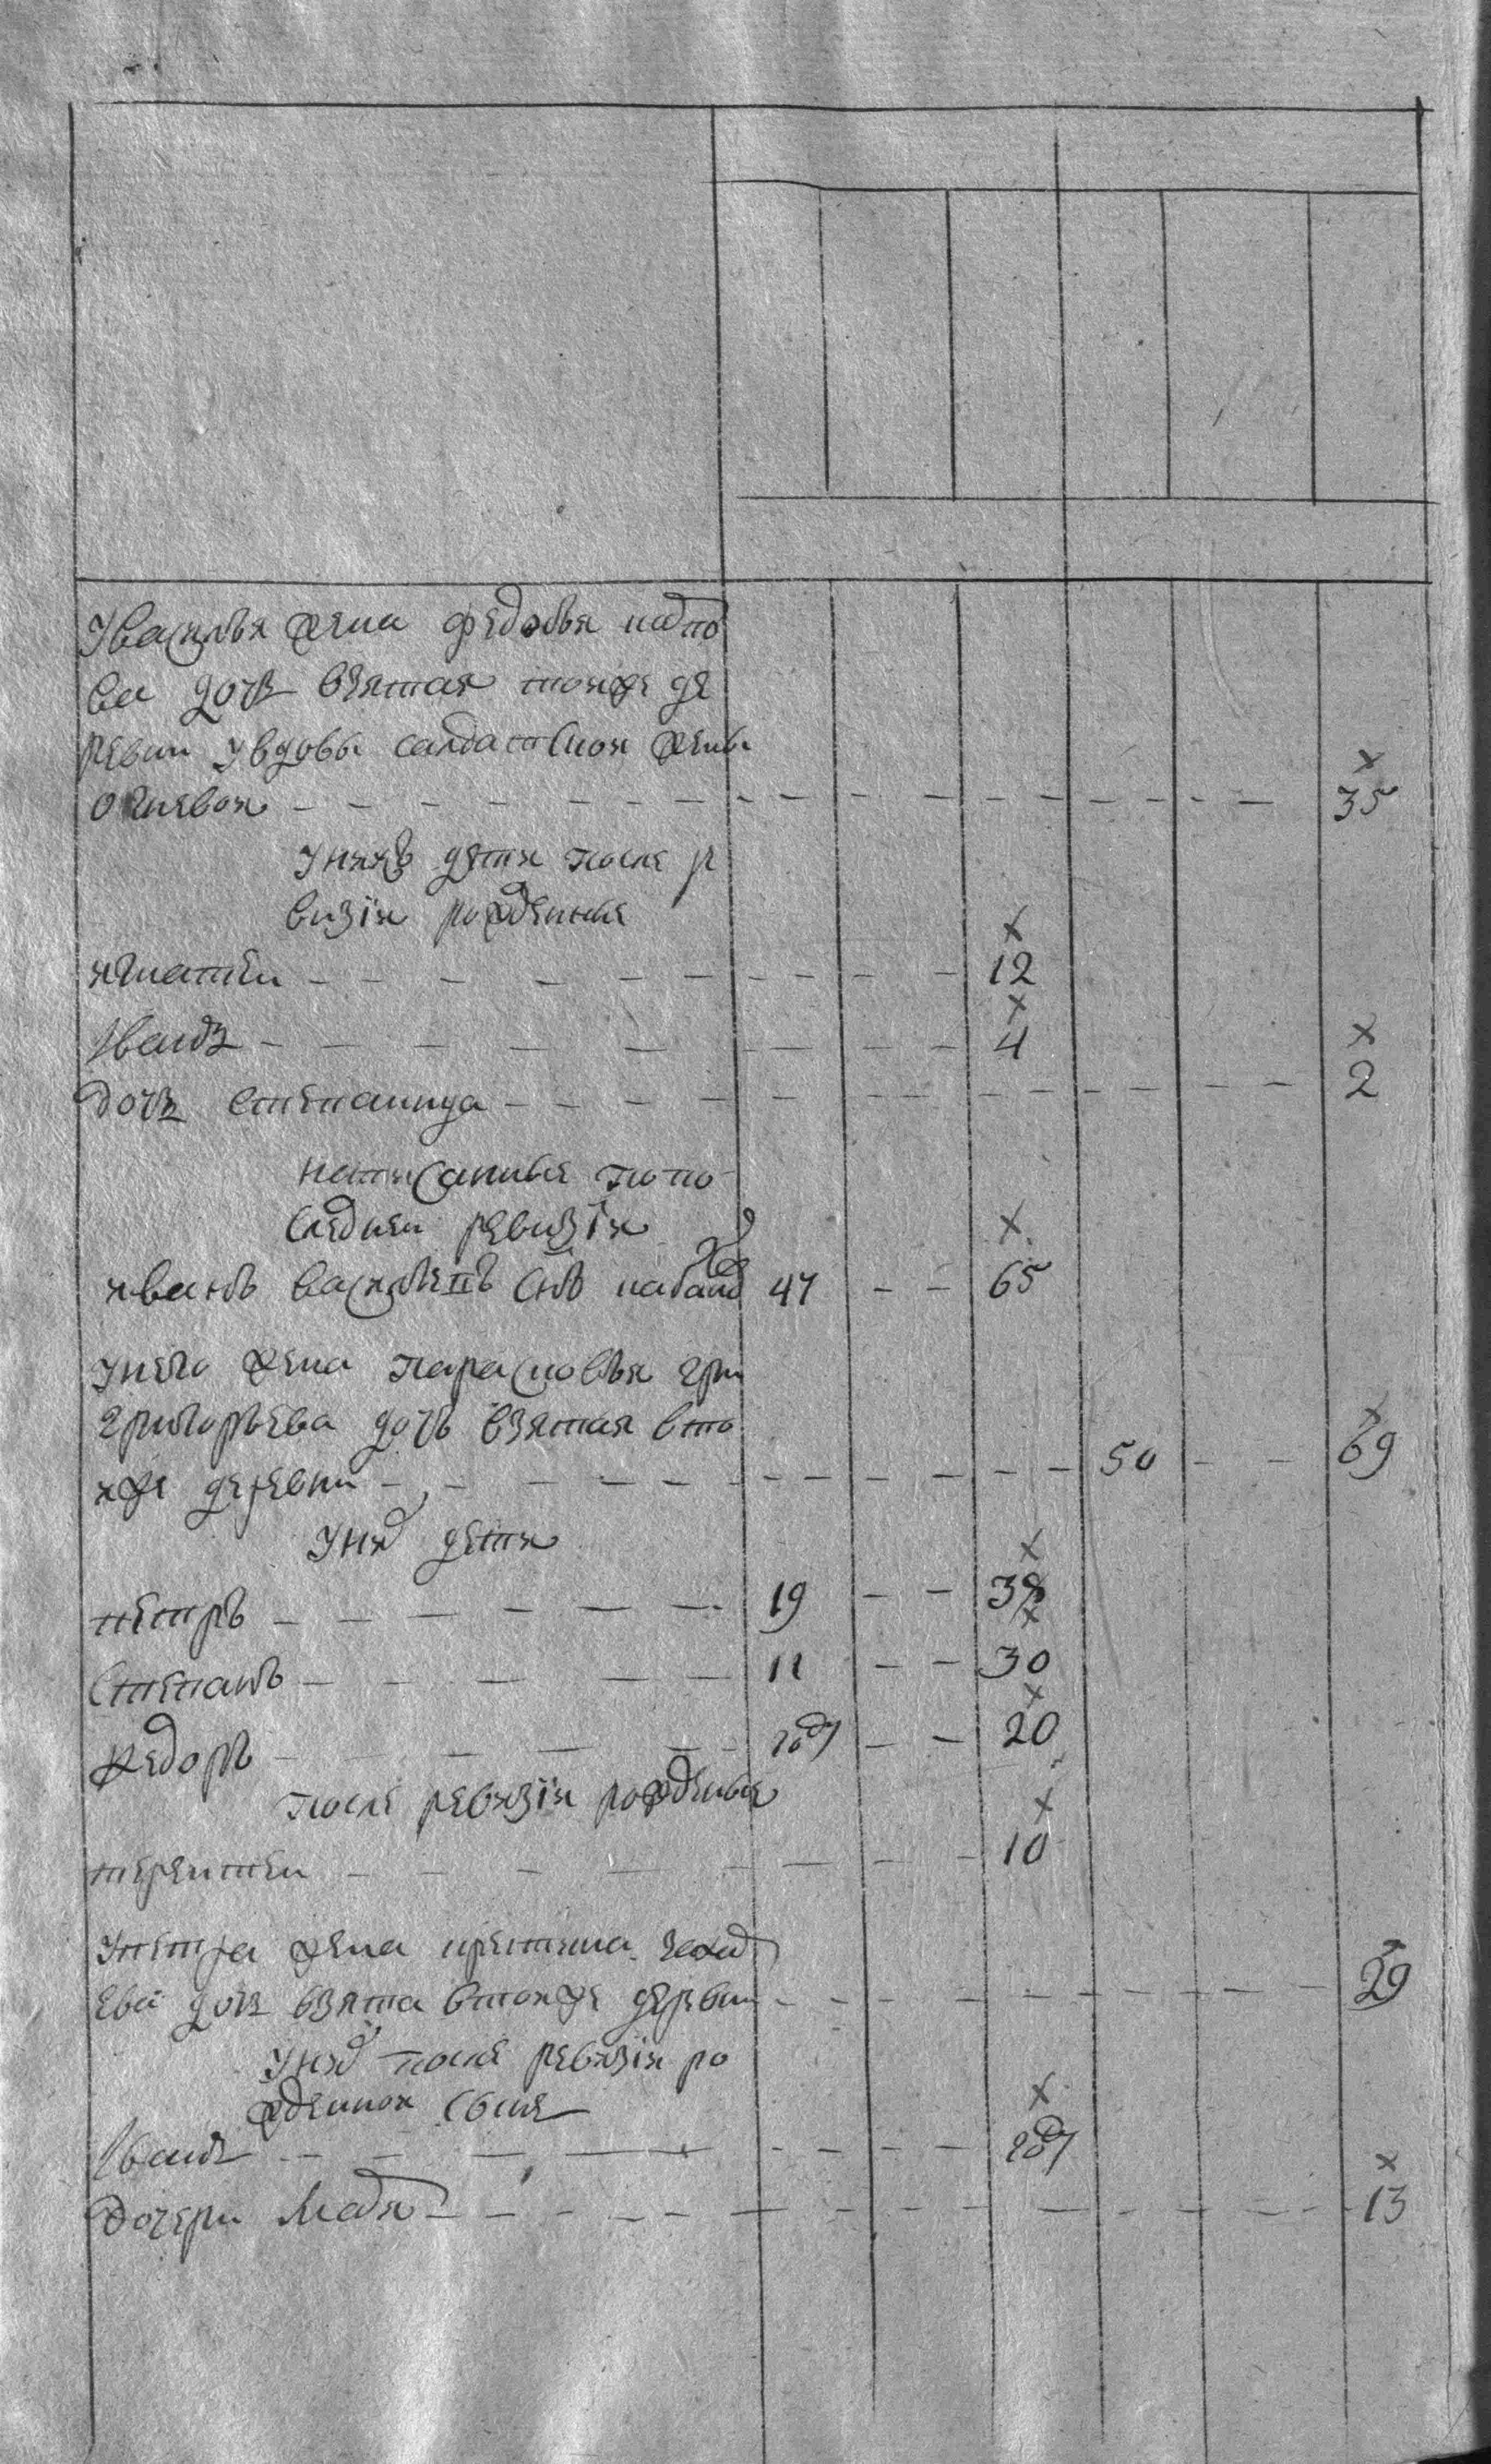 Увасилья жена федосья кадпо
ва дочь взятая тоиже де
ревни увдовы салдатской жены
огневои
Унихъ дети после р
визiи рожденные
игнатеи 12
Иванъ 4
дочь степанида 2
написанные по по
следнеи ревизiи
иванъ васильевъ снъ 47 65
Унего жена парасковья гри
григорьева дочь взятая вто
иже деревни 50 69
Уних дети
петръ 19 38
Степанъ 11 30
Федоръ году 20
после ревизiи рожденые
терентеи 10
Упетра жена
ева дочь взята втоиже дервни 29
Уних после ревизiи ро
жденнои сынъ
Иванъ году
дочери 13